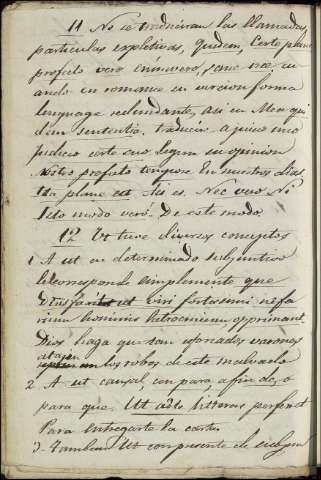 11 No se traduciran las llamadas
particulas expletivas, quidem, Certe plane
profeto vero enimvero, sane
ando en romance su version forma
lenguage redundante, asi en Mea qui
dem sententia. traducir a juicio mio
judicio certe suo segun su opinion
nostro profeto tempore En nuestros dias
Ita plane est Asi es. Nec vero Ni
Isto modo vero. De este modo.
12 Ut tiene diversos conceptos
1 A ut en determinado subjuntivo
le corresponde simplemente que
Utinam ut viri fortissimi nefa
rium hominis latrocinium opprimant
Dios haga que tan esforzados varones
atajen
los robos de este malvado
2 A ut causal, con para a fin de, o
para que. Ut ad te litteras perferret
Para entregarte la carta
3. Tambien Ut con presente de subjun